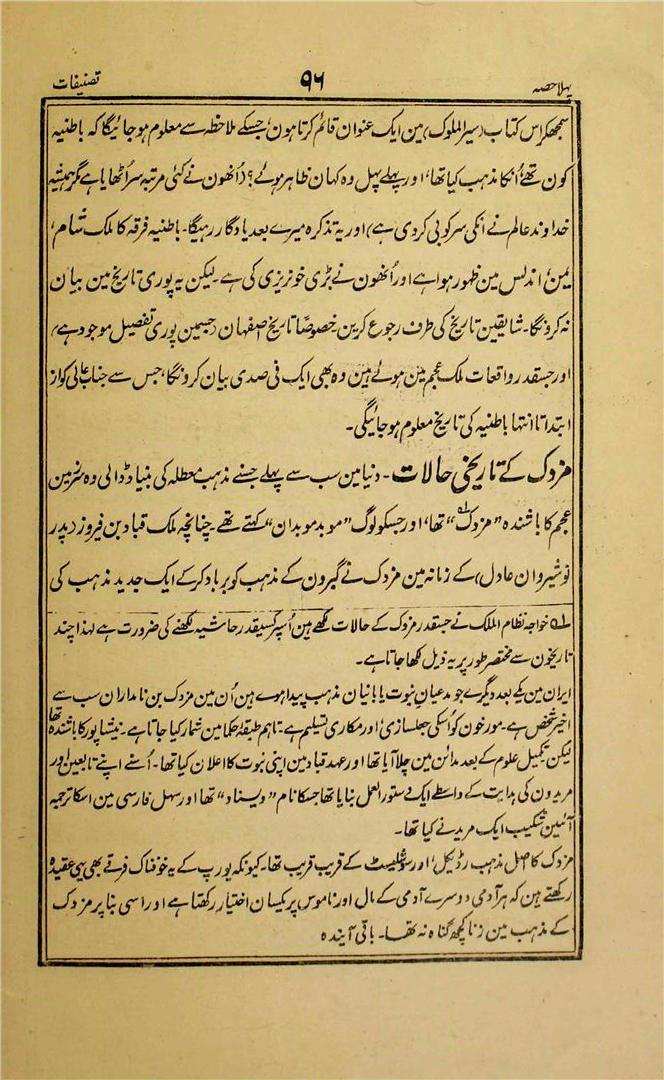 پہلا حصہ ۹۶ تصنیفات
سمجھکر اس کتاب (سیر الملوک) مین ایک عنوان قائم کرتا ہون، جسکے ملاحظہ سے معلوم ہوجائیگا کہ باطنیہ
کون تھے؟ اُنکا مذہب کیا تھا، اور پہلے پہل وہ کہان ظاہر ہوئے؟ (اُنھون نے کئی مرتبہ سر اُٹھایا ہے مگر ہمیشہ
خداوند عالم نے انکی سرکوبی کر دی ہے) اور یہ تذکرہ میرے بعد یادگار رہیگا۔ باطنیہ فرقہ کا ملک شام،
یمن، اندلس مین ظہور ہوا ہے اور اُنھون نے بڑی خونریزی کی ہے۔ لیکن یہ پوری تاریخ مین بیان
نہ کرونگا۔ شایقین تاریخ کی طرف رجوع کرین خصوصًا تاریخ اصفہان (جسمین پوری تفصیل موجود ہے)
اور جسقدر واقعات ملک عجم مین ہوئے ہین وہ بھی ایک فی صدی بیان کرونگا، جس سے جناب عالی کو از
ابتدا تا انتہا باطنیہ کی تاریخ معلوم ہوجائیگی۔
مزدک کے تاریخی حالات۔ دنیا مین سب سے پہلے جسنے مذہب معطلہ کی بنیاد ڈالی وہ سرزمین
عجم کا باشندہ ”مزدک“ ؂۱ تھا، اور جسکو لوگ ”موبد موبدان“ کہتے تھے۔ چنانچہ ملک قباد بن فیروز (پدر
نوشیروان عادل) کے زمانہ مین مزدک نے گبرون کے مذہب کو برباد کرکے ایک جدید مذہب کی
؂۱ خواجہ نظام الملک نے جسقدر مزدک کے حالات لکھے ہین اُسپر کسیقدر حاشیہ لکھنے کی ضرورت ہے لہذا چند
تاریخون سے مختصر طور پر یہ ذیل لکھا جاتا ہے۔
ایران مین یکے بعد دیگرے جو مدعیانِ نبوت یا بانیان مذہب پیدا ہوے ہین اُن مین مزدک بن نامداران سب سے
اخیر شخص ہے۔ مورخون کو اُسکی جعلسازی، اور مکاری تسلیم ہے۔ تاہم طبقۂ حکما مین شمار کیا جاتا ہے۔ نیشاپور کا باشندہ تھا
لیکن تکمیل علوم کے بعد مدائن مین چلا آیا تھا اور عہد قباد مین اپنی نبوت کا اعلان کیا تھا۔ اُسنے اپنے تابعین اور
مریدون کی ہدایت کے واسطے ایک دستور العمل بنایا تھا جسکا نام ”ویسناد“ تھا اور سہل فارسی مین اسکا ترجمہ
آئین شکیب ایک مرید نے کیا تھا۔
مزدک کا اصل مذہب رڈیکل، اور سوشلیسٹ کے قریب قریب تھا۔ کیونکہ یورپ کے یہ خوفناک فرقے بھی یہی عقیدہ
رکھتے ہین کہ ہر آدمی دوسرے آدمی کے مال اور ناموس پر یکسان اختیار رکھتا ہے اور اسی بنا پر مزدک
کے مذہب مین زنا کچھ گناہ نہ تھا۔ باقی آیندہ